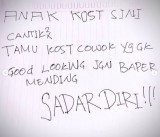 ANAK KOST SINI
CANTIK²
TAMU KOST COWOK YG GK
GOOD LOOKING JGN BAPER
MENDING
SADAR DIRI!!!